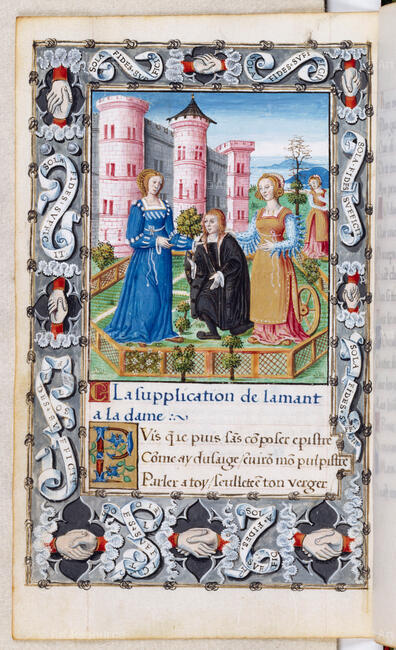 SOLA FIDES SVFFICIT
FIDES SVFFICI
SOLA FIDES SVFFICIT
SOLA FIDES SVFFICI
SOLA FIDES
La supplication de lamant
a la dame :~
PVis q̃ ie puis sãs cõposer epistre
Cõme ay dusaige / mõ pulpistre
Parler a toy / seullete ẽ ton verger
FIDES SVFF
SOLA FIDES SVFFIC